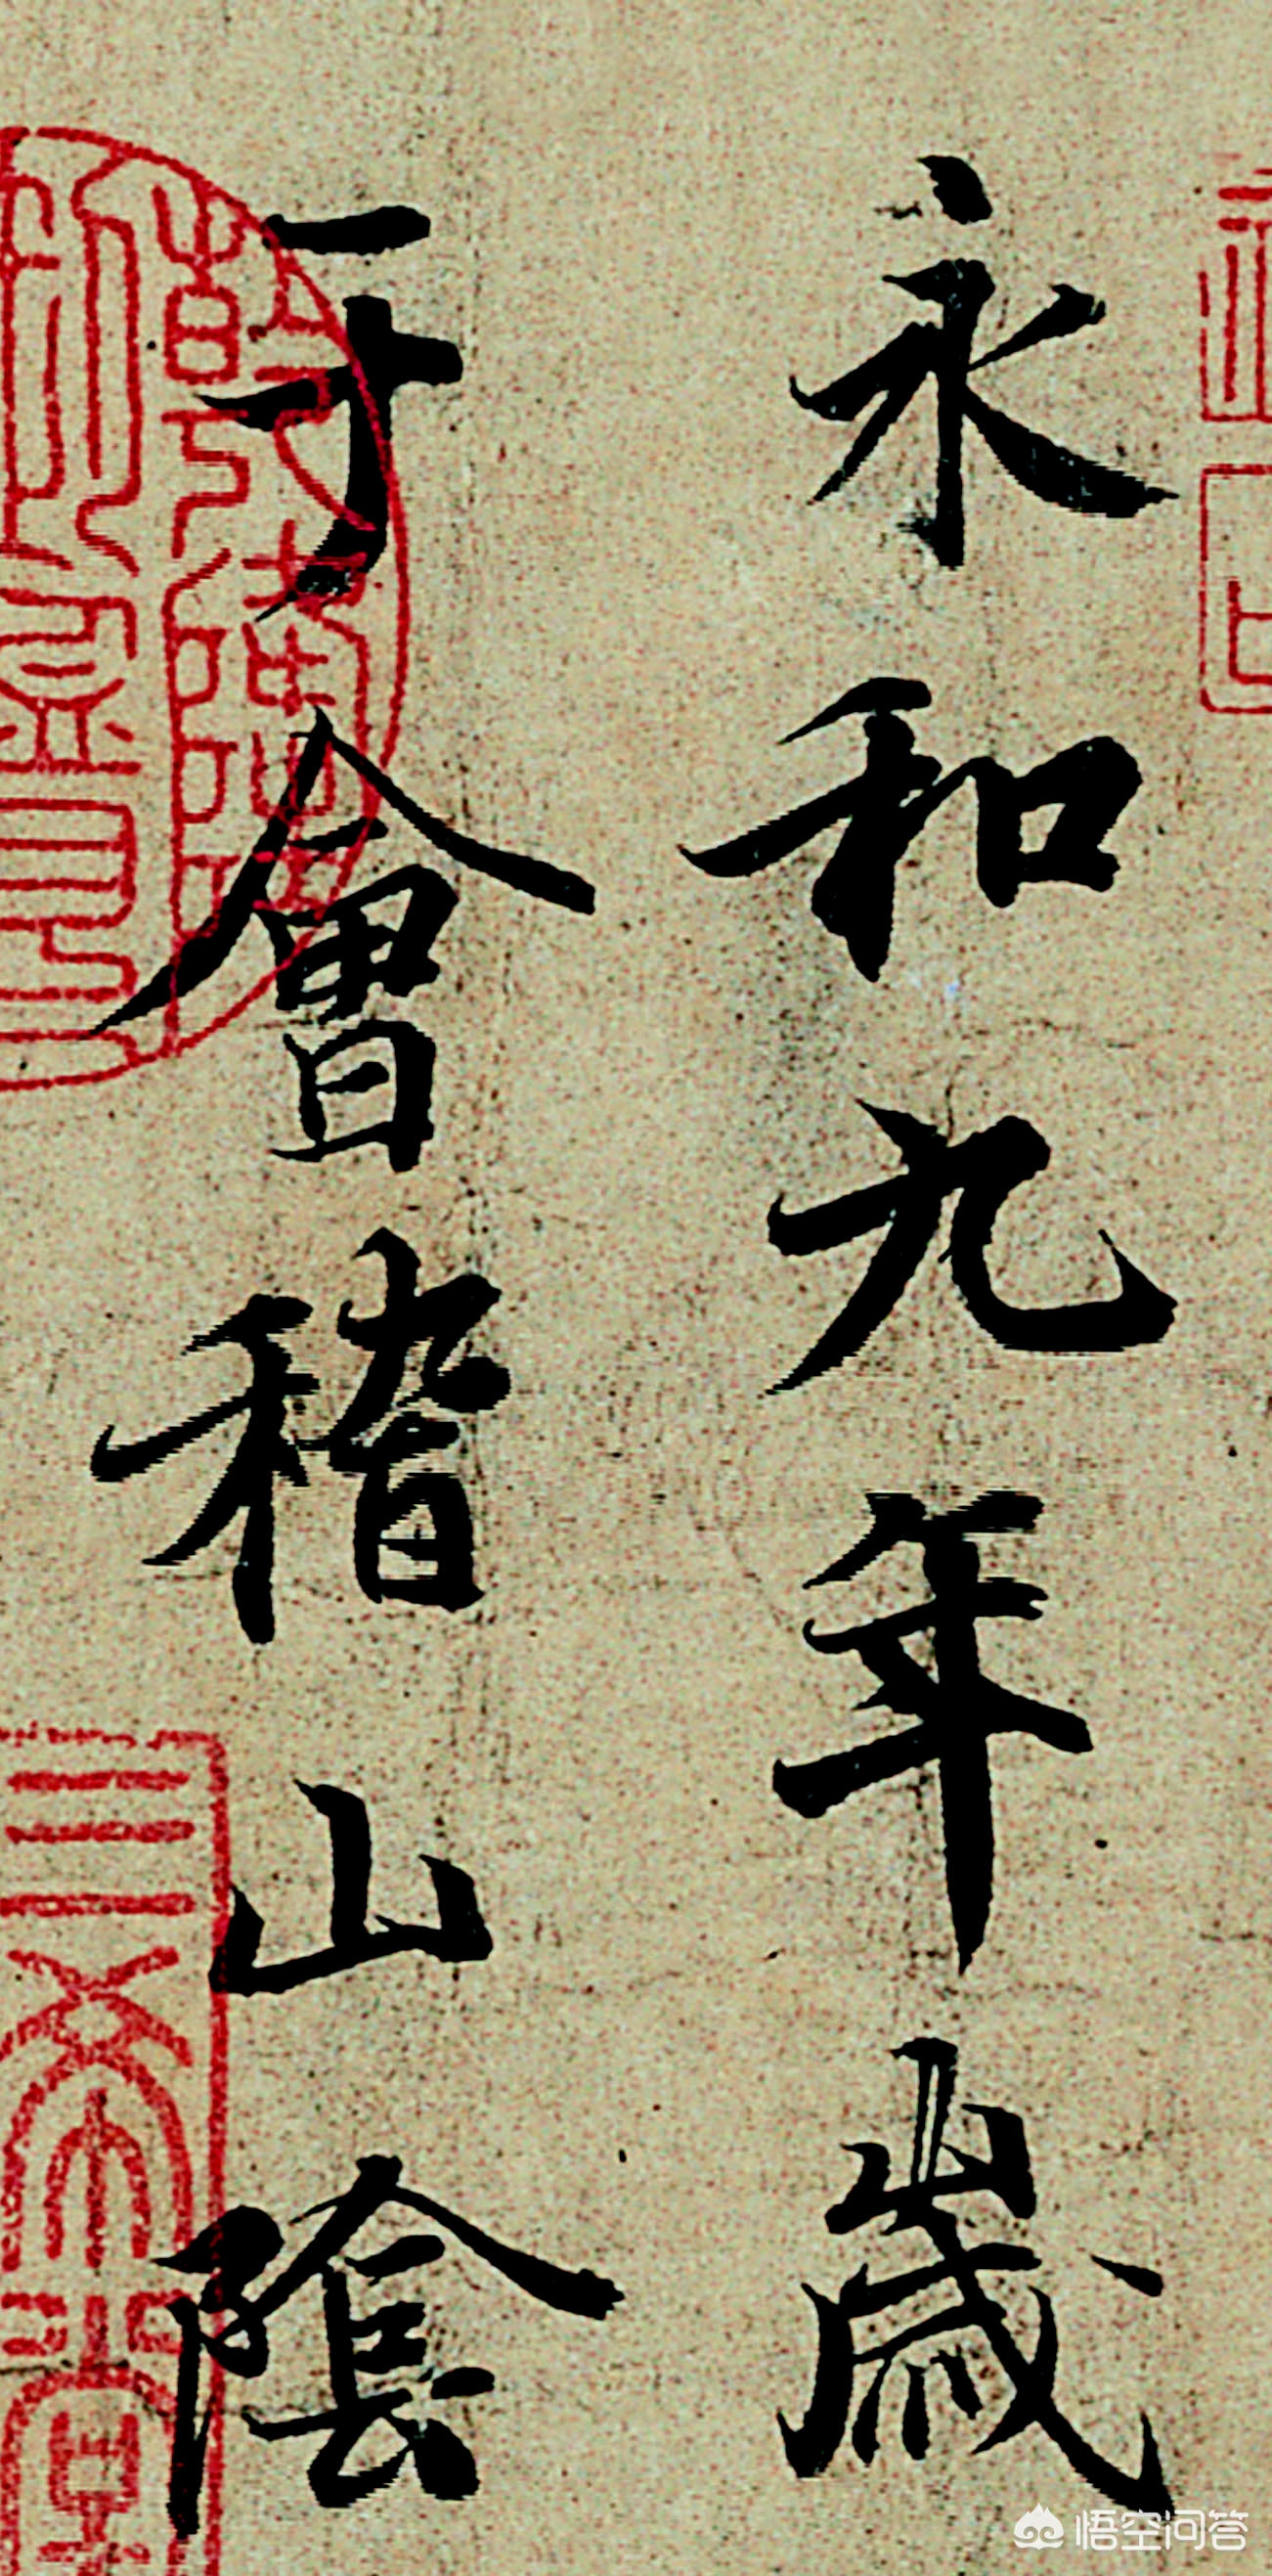 永和九年歲
于會稽山陰
悟空问答